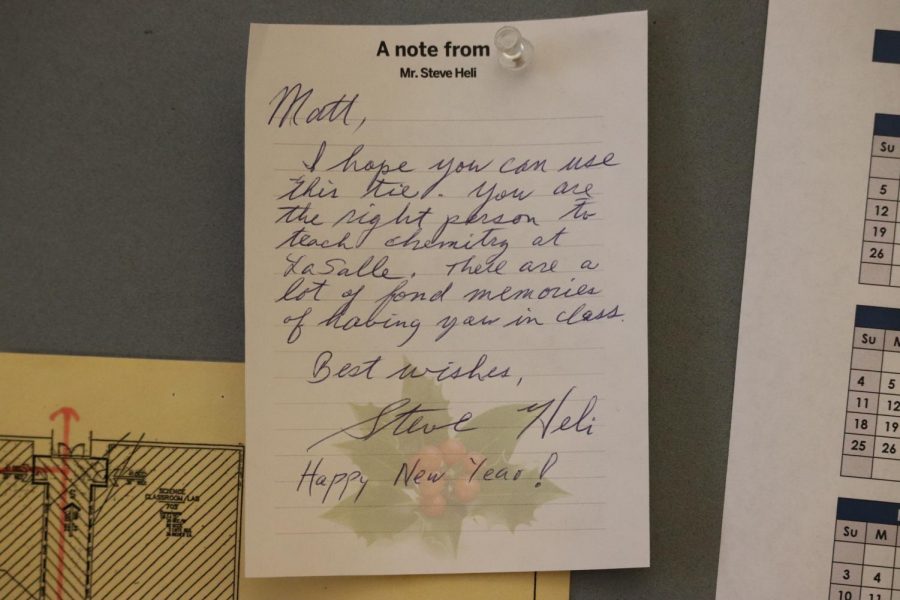 A note from
Mr. Steve Heli
Matt,
I hope you can use
this tie. You are
the right person to
teach chemitry at
LaSalle. There are a
lot of fond memories
of having you in class.
Best wishes,
Steve Heli
Happy New Year!
SCIENCE
CLASSROOM/LAB
703
Su
5
12
19
26
Su M
4 5
11 12
18 19
25 26
Su M
3 4
10 11